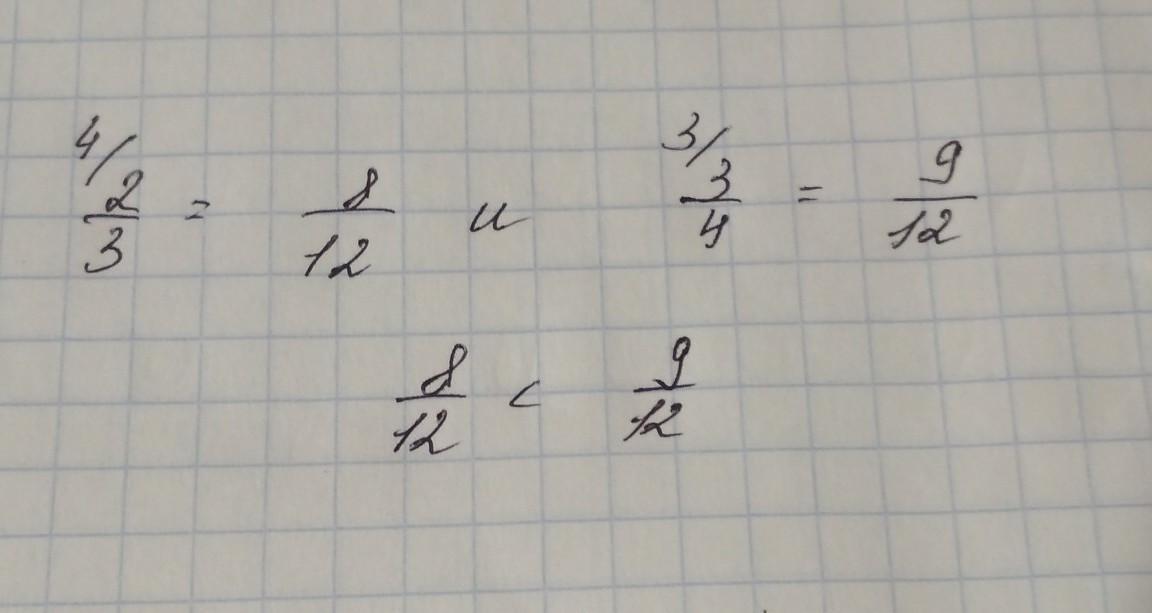 4/ 2/3 = 8/12 и 3/ 3/4 = 9/12
8/12 < 9/12